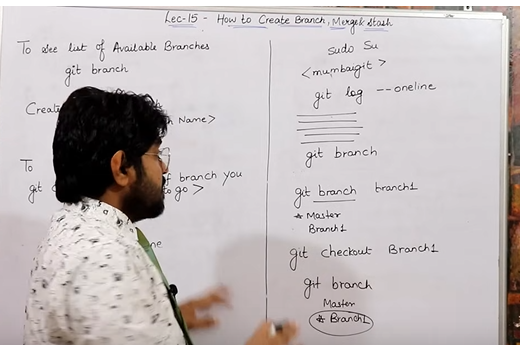 Lec-15 - How to Create Branch, Merge & Stash
To see list of Available Branches
git branch
Creat
Name>
To
of branch you
git
to go >
ne
sudo su
<mumbaigit>
git log --oneline
git branch
git branch branch1
* Master
Branch1
git checkout Branch1
git branch
Master
* Branch1